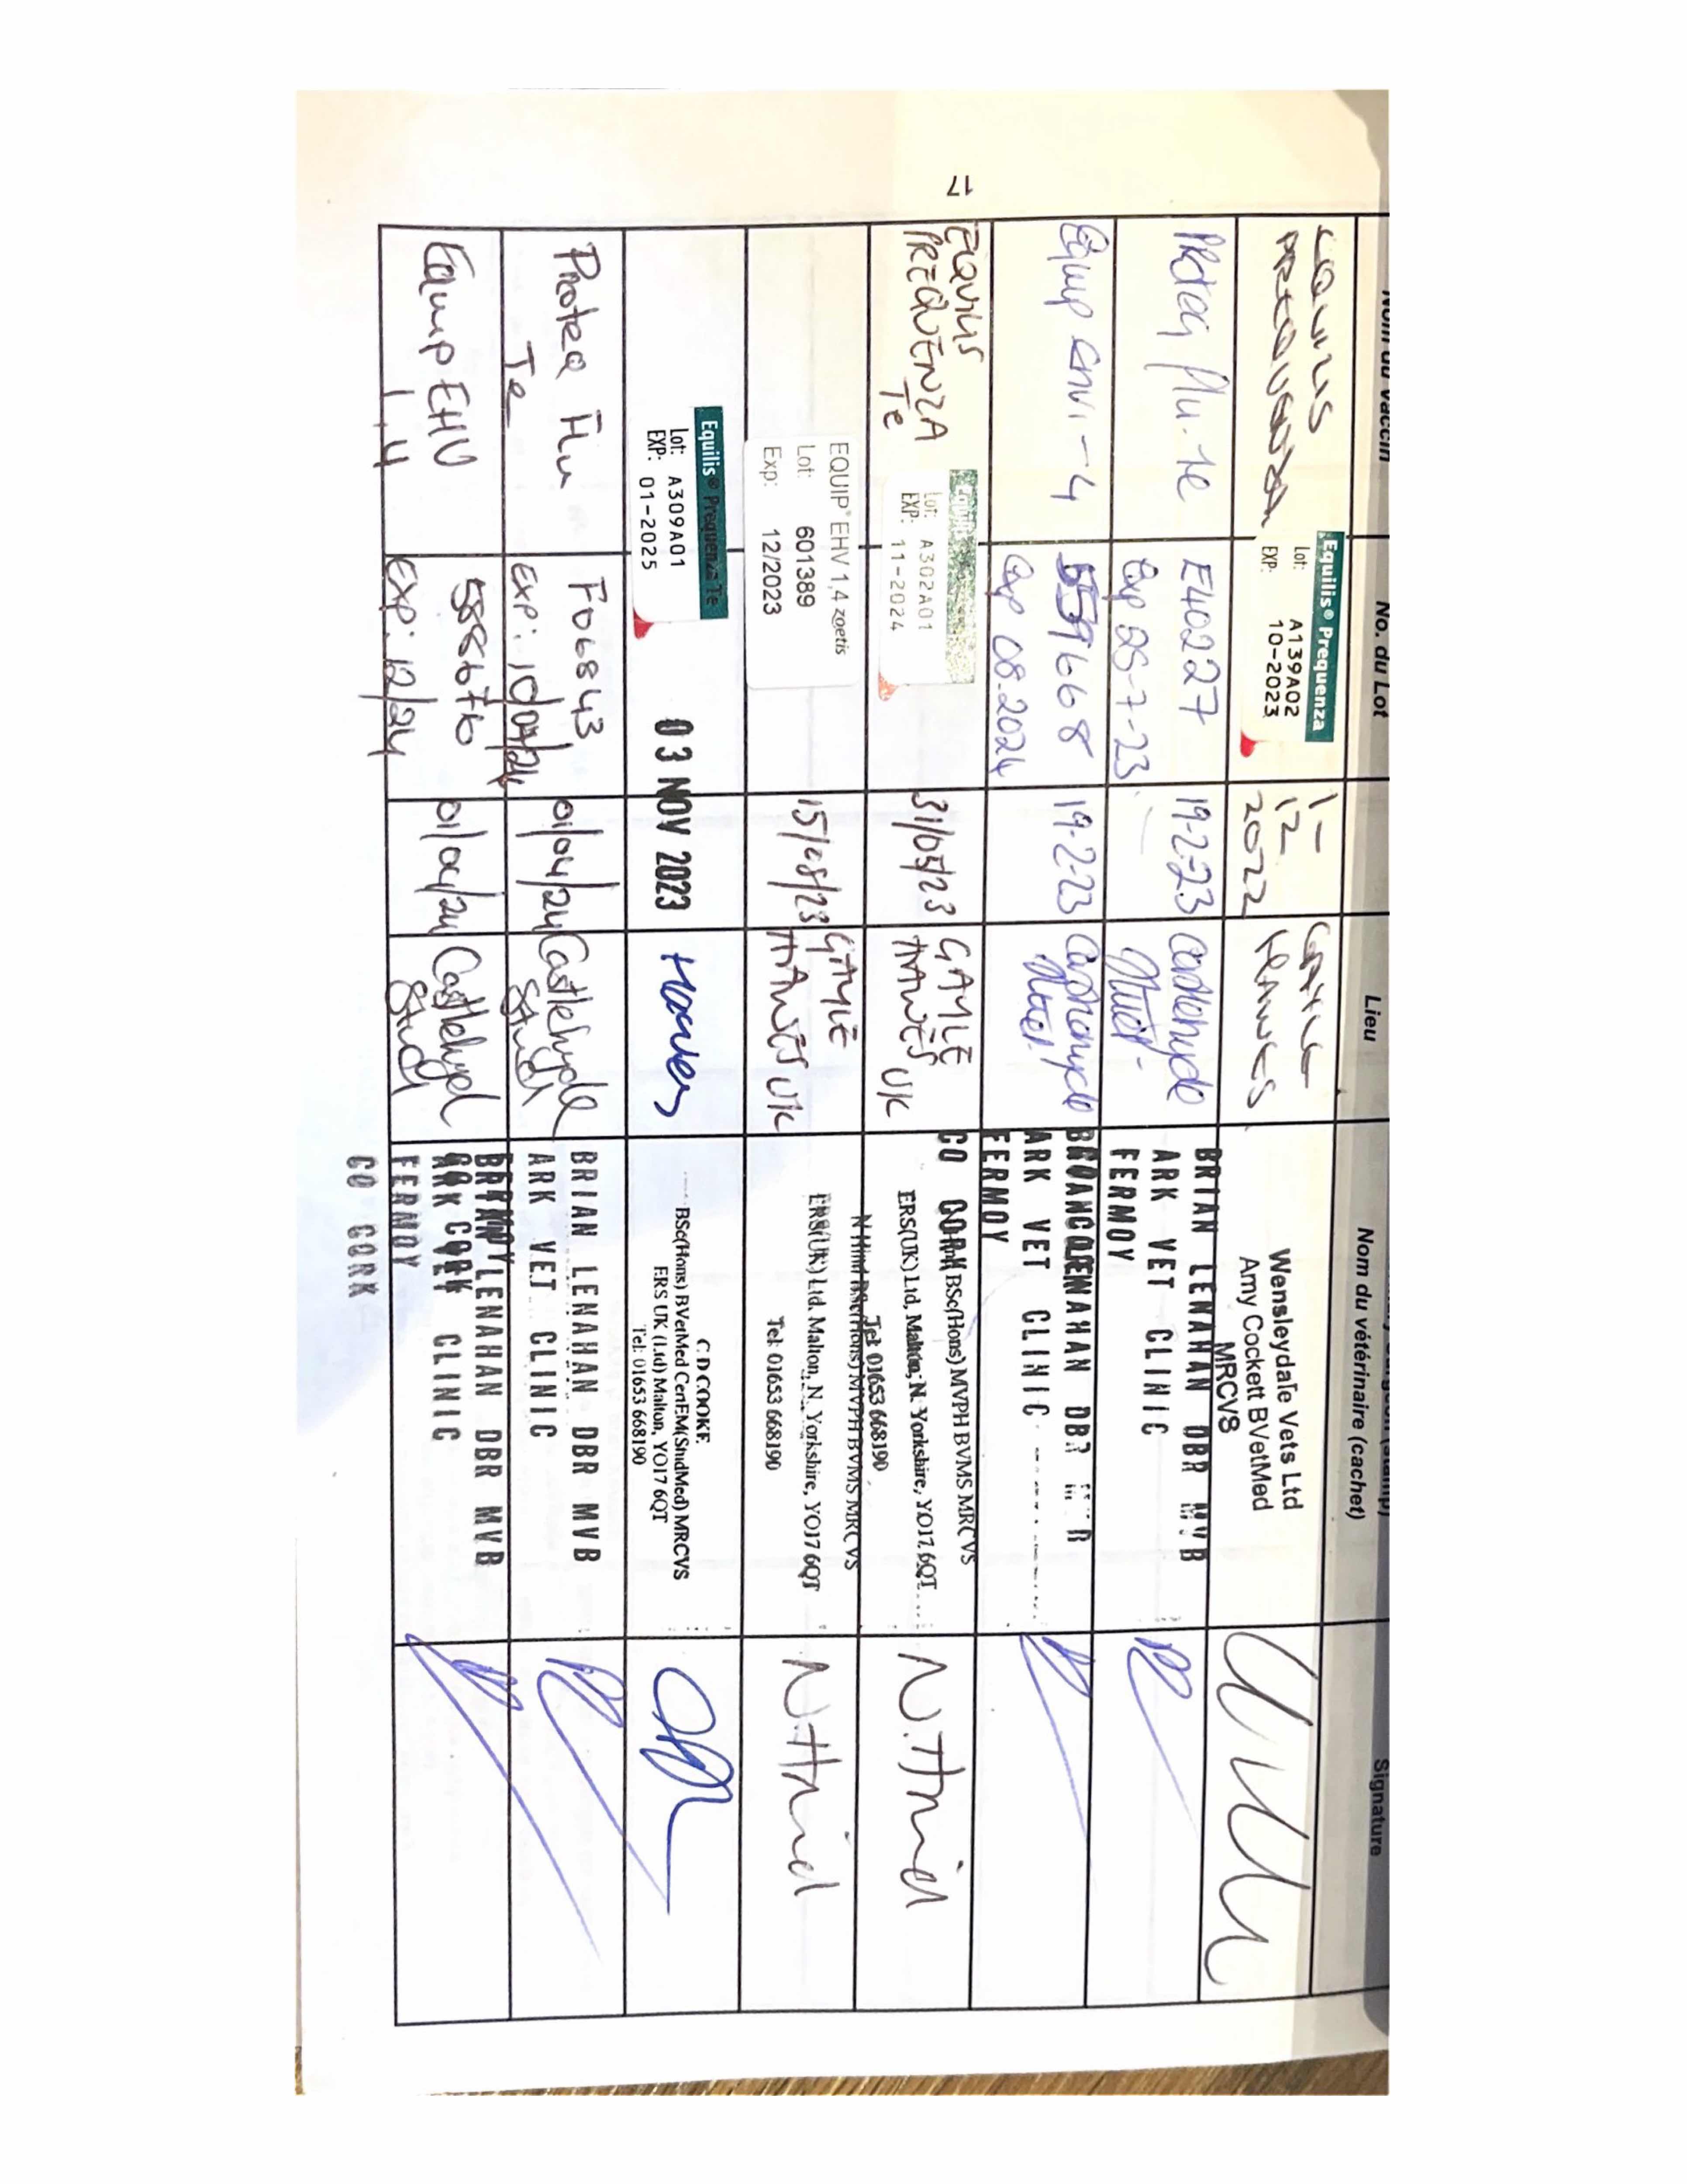 Nom du vaccin
No. du Lot
Lieu
Nom du vétérinaire (cachet)
Signature
EQUILIS
PREQUENZA
Equilis® Prequenza
Lot: A139A02
EXP: 10-2023
1-
12
2022
GAYLE
HAWES
Wensleydale Vets Ltd
Amy Cockett BVetMed
MRCVS
Proteq Flu. te
E40227
Exp 25-7-23
19-2-23
Castlehyde
BRIAN LENAHAN DBR MVB
ARK VET CLINIC
FERMOY
CO CORK
Equip EHV1-4
559668
Exp 08.2024
19-2-23
Castlehyde
LENAHAN DBR
ARK VET CLINIC
FERMOY
CO CORK
EQUILIS
PREQUENZA
Te
Lot: A302A01
EXP: 11-2024
31/05/23
GAYLE
HAWES UK
BSc(Hons) MVPH BVMS MRCVS
ERS(UK) Ltd, Malton, N. Yorkshire, YO17 6QT
Tel: 01653 668190
N.Hind
EQUIP® EHV 1,4 zoetis
Lot: 601389
Exp: 12/2023
15/08/23
GAYLE
HAWES UK
N Hind BSc(Hons) MVPH BVMS MRCVS
ERS(UK) Ltd. Malton, N. Yorkshire, YO17 6QT
Tel: 01653 668190
N.Hind
Equilis® Prequenza Te
Lot: A309A01
EXP: 01-2025
03 NOV 2023
Hawes
C D COOKE
BSc(Hons) BVetMed CertEM(StudMed) MRCVS
ERS UK (Ltd) Malton, YO17 6QT
Tel: 01653 668190
Proteq Flu
Te
F06843
01/04/24
Castlehyde
Stud
BRIAN LENAHAN DBR MVB
ARK VET CLINIC
FERMOY
CO CORK
Equip EHV
1,4
Exp: 12/24
01/04/24
Castlehyd
Stud
BRIAN LENAHAN DBR MVB
ARK VET CLINIC
FERMOY
CO CORK
17